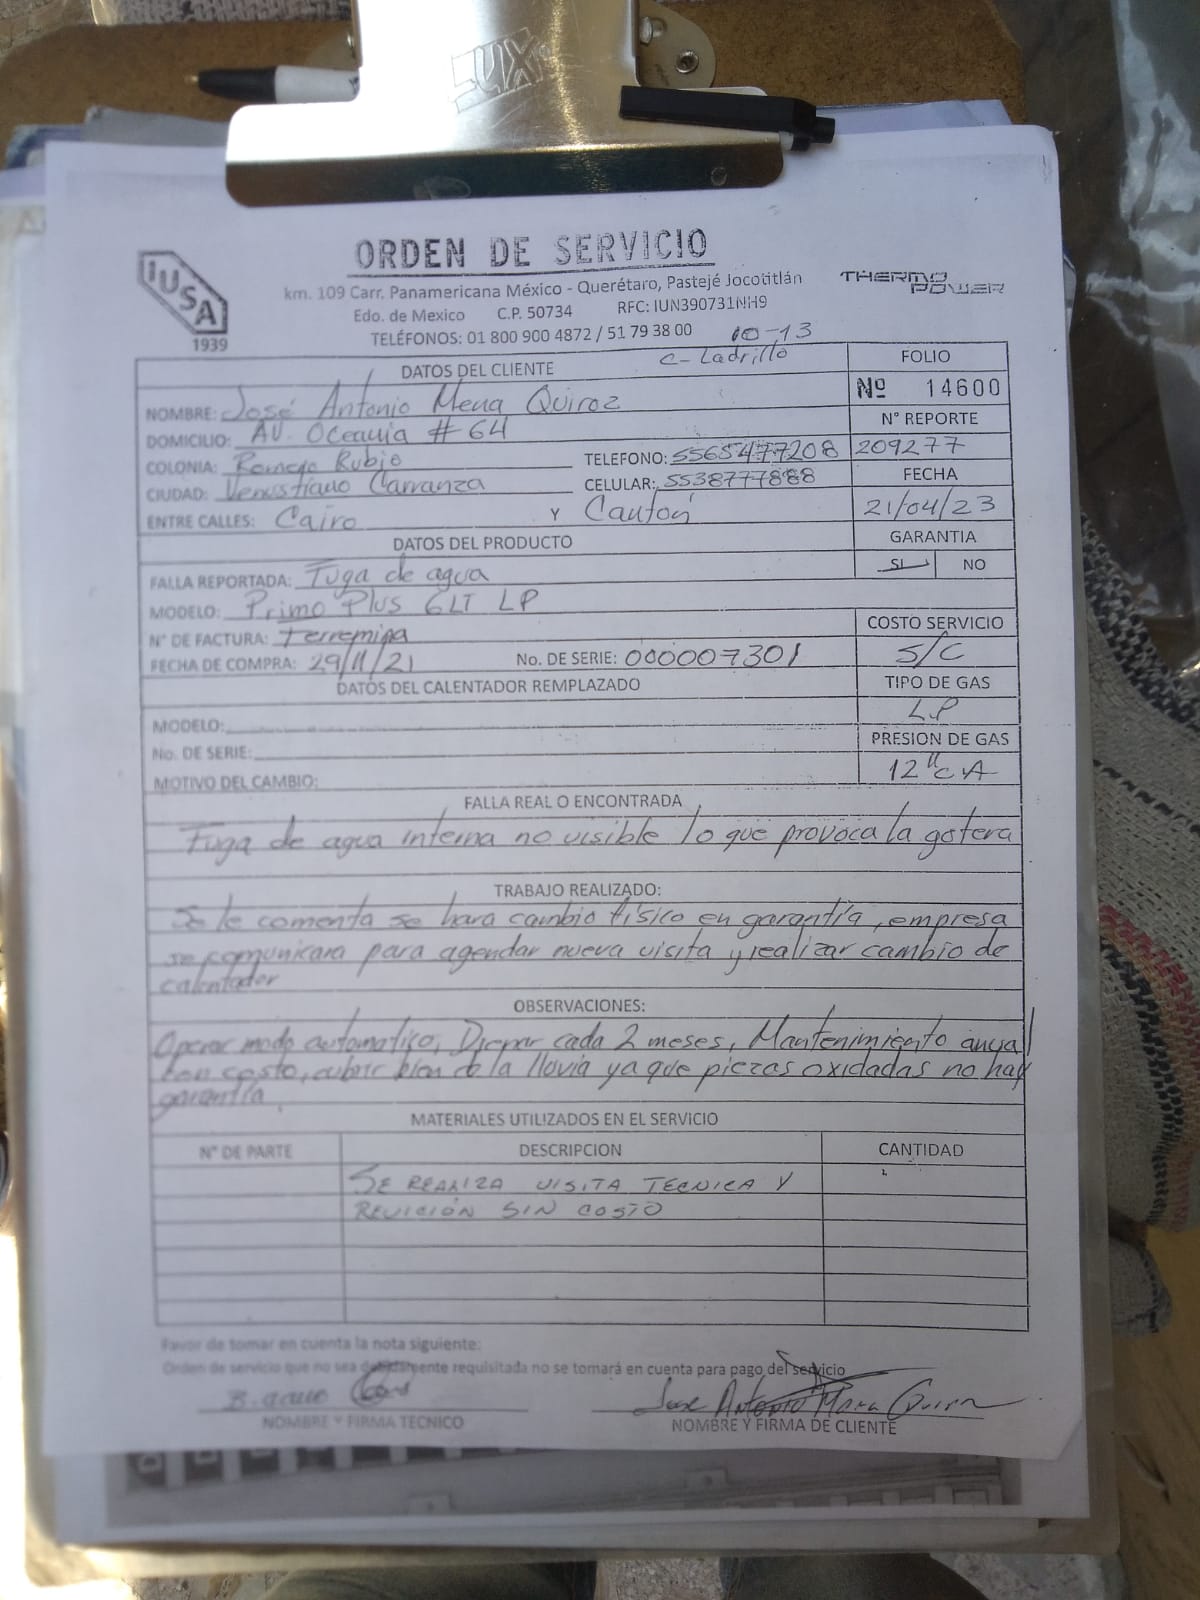 LUX
ORDEN DE SERVICIO
IUSA
1939
km. 109 Carr. Panamericana México - Querétaro, Pastejé Jocotitlán
THERMO POWER
Edo. de Mexico C.P. 50734 RFC: IUN390731NH9
TELÉFONOS: 01 800 900 4872 / 51 79 38 00 10-13
DATOS DEL CLIENTE C-Ladrillo FOLIO
Nº 14600
NOMBRE: José Antonio Mena Quiroz
N° REPORTE
DOMICILIO: AV. Oceania # 64
209277
COLONIA: Romero Rubio TELEFONO: 5565477208
FECHA
CIUDAD: Venustiano Carranza CELULAR: 5538777888
21/04/23
ENTRE CALLES: Cairo Y Cantón
DATOS DEL PRODUCTO GARANTIA
SI NO
FALLA REPORTADA: Fuga de agua
MODELO: Primo Plus 6LT LP
COSTO SERVICIO
N° DE FACTURA: Ferremina
S/C
FECHA DE COMPRA: 29/11/21 No. DE SERIE: 000007301
DATOS DEL CALENTADOR REMPLAZADO TIPO DE GAS
L.P
MODELO:
PRESION DE GAS
No. DE SERIE:
12"CA
MOTIVO DEL CAMBIO:
FALLA REAL O ENCONTRADA
Fuga de agua interna no visible lo que provoca la gotera
TRABAJO REALIZADO:
Se le comenta se hara cambio físico en garantía, empresa
se comunicara para agendar nueva visita y realizar cambio de
calentador
OBSERVACIONES:
Operar modo automatico, Drenar cada 2 meses, Mantenimiento anual
con costo, cubrir bien de la lluvia ya que piezas oxidadas no hay
garantía
MATERIALES UTILIZADOS EN EL SERVICIO
N° DE PARTE DESCRIPCION CANTIDAD
SE REALIZA VISITA TECNICA Y
REVICIÓN SIN COSTO
Favor de tomar en cuenta la nota siguiente:
Orden de servicio que no sea debidamente requisitada no se tomará en cuenta para pago del servicio
Jose Antonio Mena Quiroz
NOMBRE Y FIRMA TECNICO NOMBRE Y FIRMA DE CLIENTE